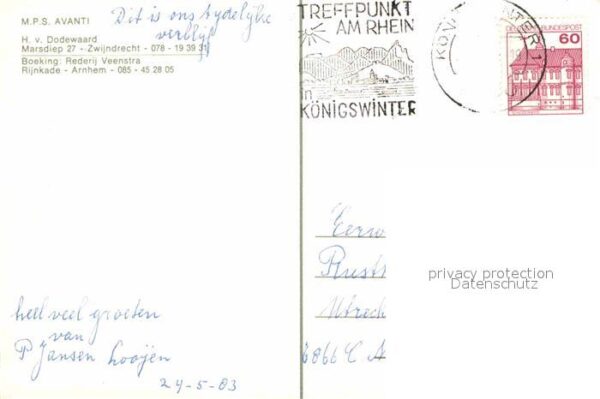 M.P.S. AVANTI
H. v. Dodewaard
Marsdiep 27 - Zwijndrecht - 078 - 19 39 31
Boeking: Rederij Veenstra
Rijnkade - Arnhem - 085 - 45 28 05
Dit is ons tydelijke
verblijf
TREFFPUNKT
AM RHEIN
in
KÖNIGSWINTER
DEUTSCHE BUNDESPOST
60
Eerw
Rust
Utrech
6866 C A
privacy protection
Datenschutz
heel veel groeten
van
P Jansen Looijen
24-5-83